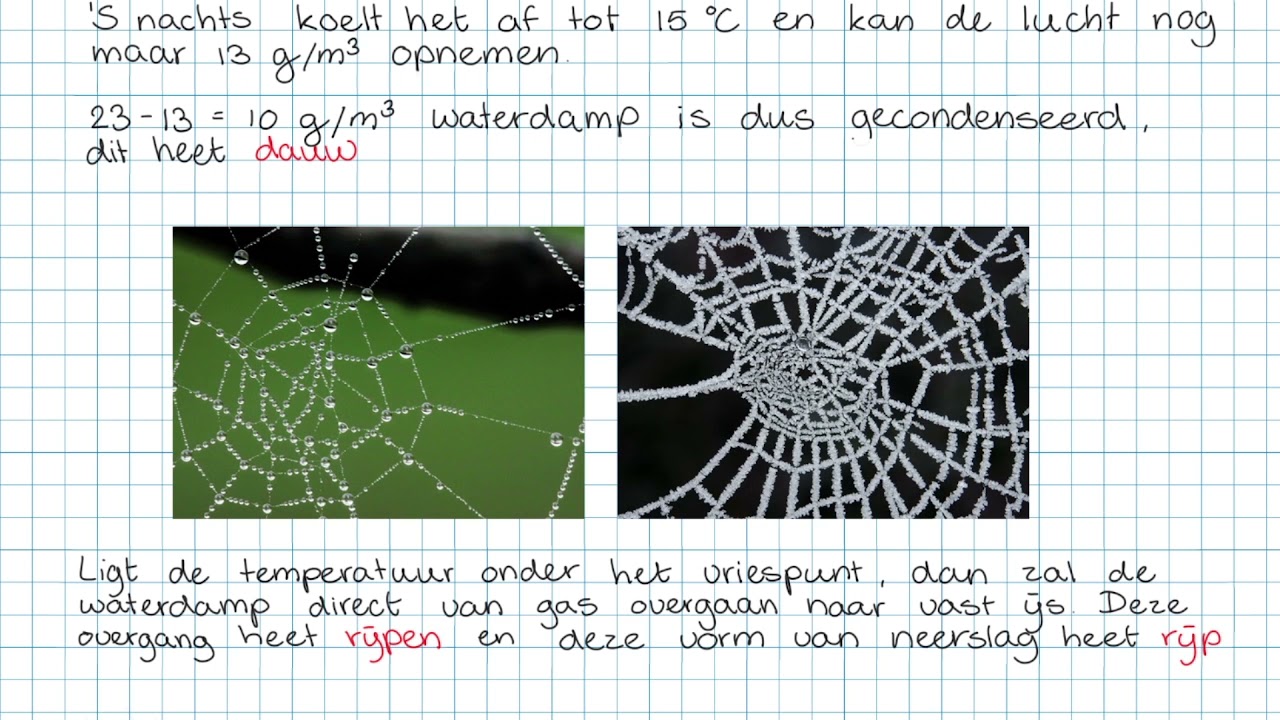 'S nachts koelt het af tot 15 °C en kan de lucht nog
maar 13 g/m³ opnemen.
23 - 13 = 10 g/m³ waterdamp is dus gecondenseerd,
dit heet dauw
Ligt de temperatuur onder het vriespunt, dan zal de
waterdamp direct van gas overgaan naar vast ijs. Deze
overgang heet rijpen en deze vorm van neerslag heet rijp